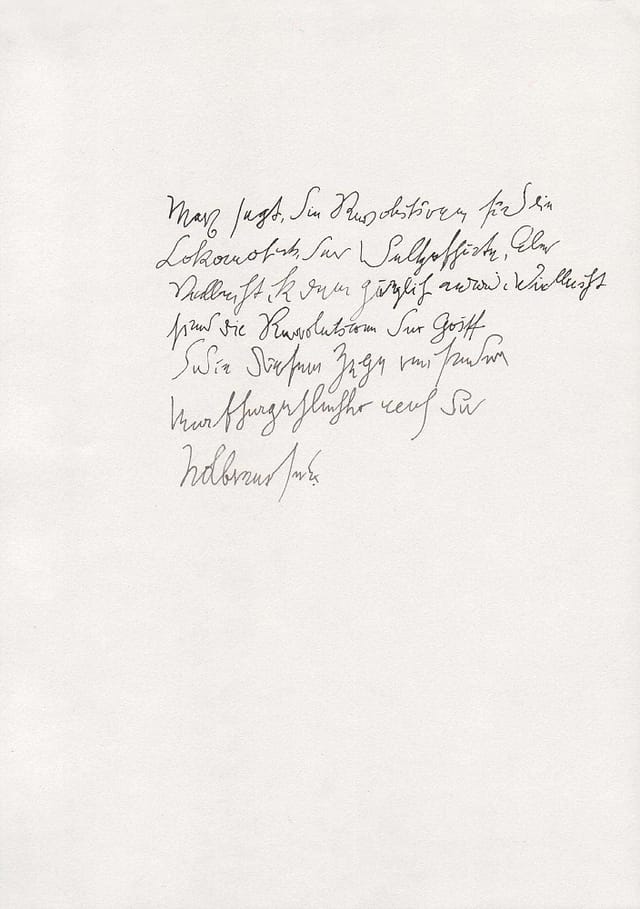 Marx sagt, die Revolutionen sind die
Lokomotiven der Weltgeschichte. Aber
vielleicht ist dem gänzlich anders. Vielleicht
sind die Revolutionen der Griff
des in diesem Zuge reisenden
Menschengeschlechts nach der
Notbremse